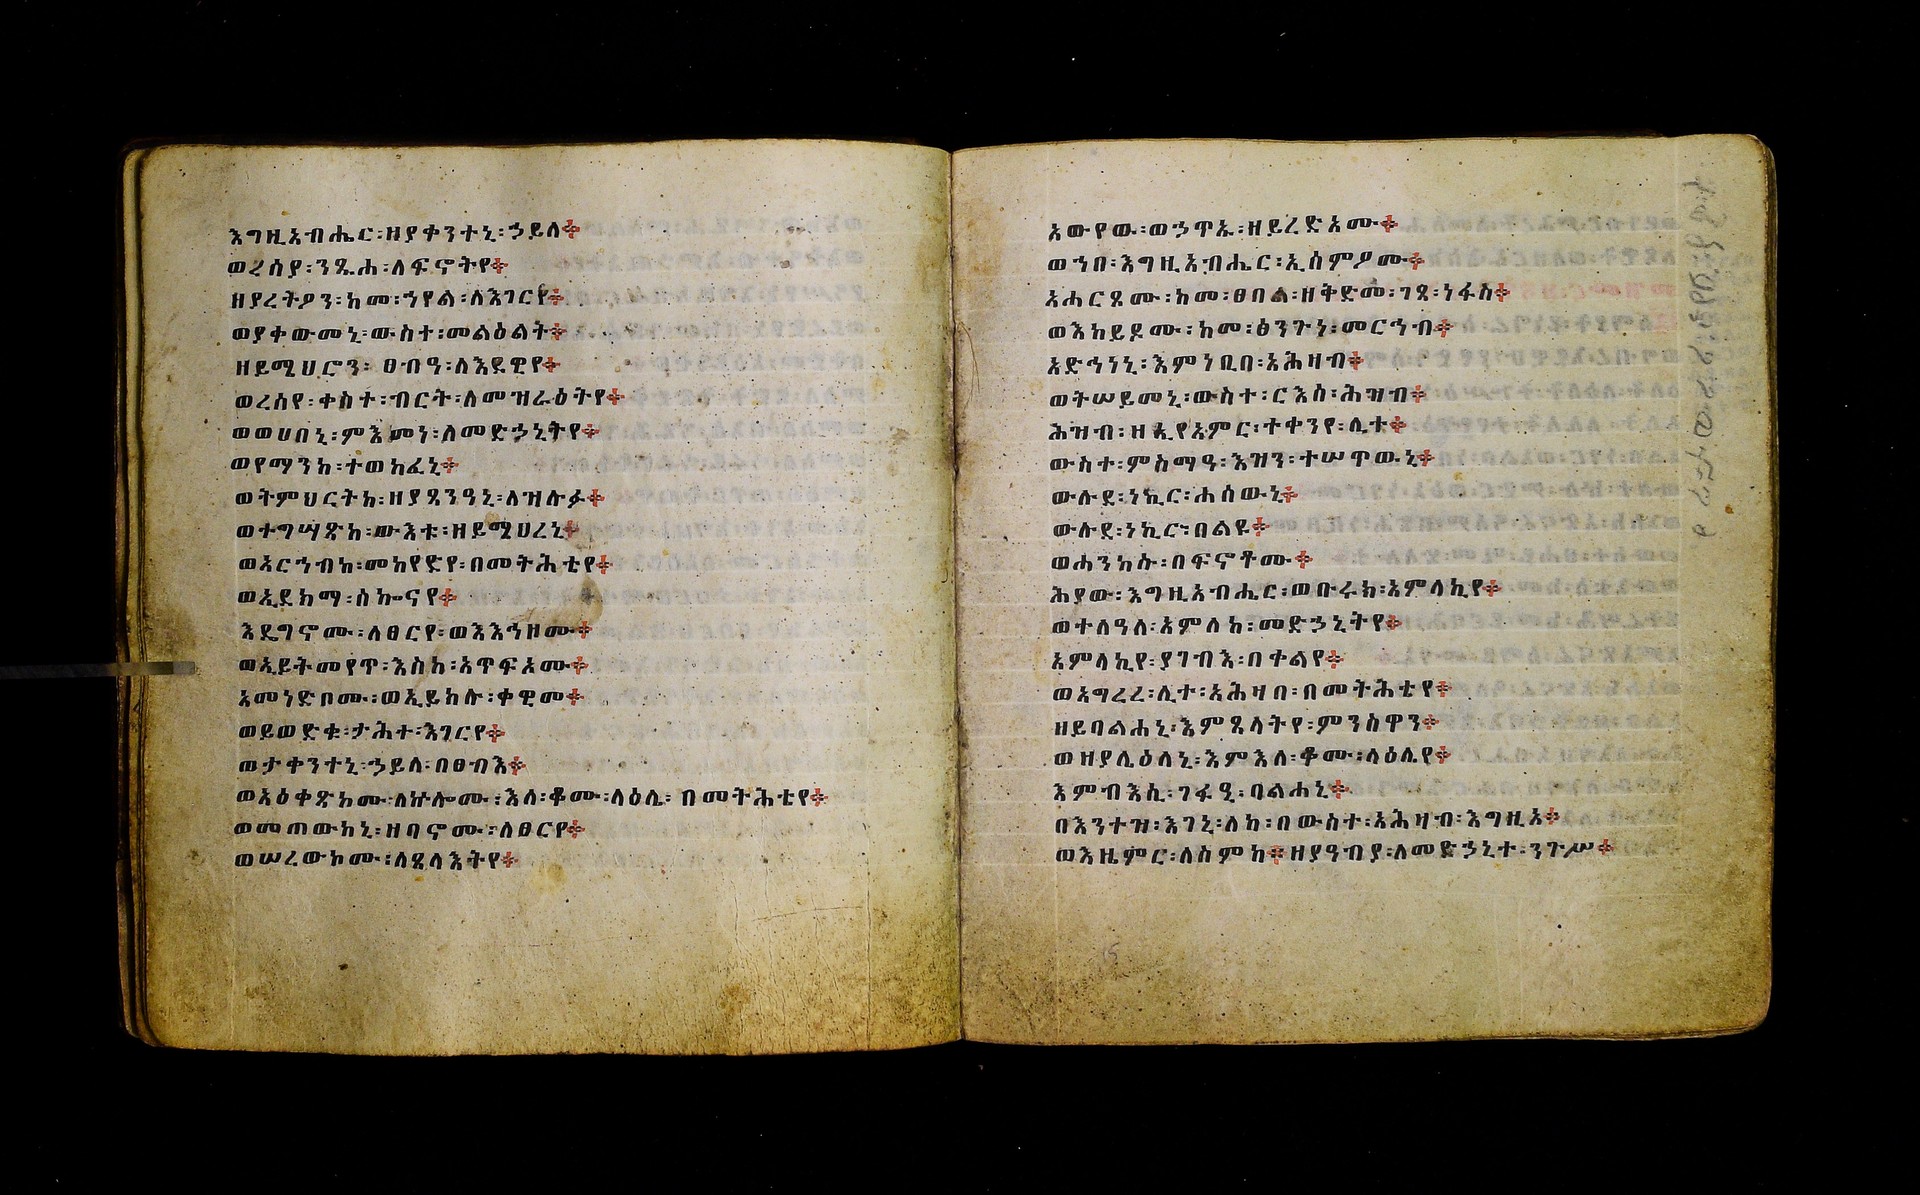 እግዚአብሔር፡ዘያቀንተኒ፡ኃይለ፨
ወረሰያ፡ንጹሐ፡ለፍኖትየ፨
ዘያረትዖን፡ከመ፡ኀየል፡ለእገርየ፨
ወያቀውመኒ፡ውስተ፡መልዕልት፨
ዘይሜህሮን፡ፀብዓ፡ለእደዊየ፨
ወረሰየ፡ቀስተ፡ብርት፡ለመዝራዕትየ፨
ወወሀበኒ፡ምእመነ፡ለመድኃኒትየ፨
ወየማንከ፡ተወክፈኒ፨
ወትምህርትከ፡ዘያጸንዓኒ፡ለዝሉፉ፨
ወተግሣጽከ፡ውእቱ፡ዘይሜህረኒ፨
ወአርኀብከ፡መከየድየ፡በመትሕቴየ፨
ወኢደክማ፡ሰኰናየ፨
እዴግኖሙ፡ለፀርየ፡ወእእኅዘሙ፨
ወኢይትመየጥ፡እስከ፡አጥፍኦሙ፨
አመነድቦሙ፡ወኢይክሉ፡ቀዊመ፨
ወይወድቁ፡ታሕተ፡እገርየ፨
ወታቀንተኒ፡ኃይለ፡በፀብእ፨
ወአዕቀጽኮሙ፡ለኵሎሙ፡እለ፡ቆሙ፡ላዕሌ፡በመትሕቴየ፨
ወመጠውከኒ፡ዘባኖሙ፡ለፀርየ፨
ወሠረውኮሙ፡ለጸላእትየ፨
አውየው፡ወኃጥኡ፡ዘይረድኦሙ፨
ወኀበ፡እግዚአብሔር፡ኢሰምዖሙ፨
አሐርጾሙ፡ከመ፡ፀበል፡ዘቅድመ፡ገጸ፡ነፋስ፨
ወእከይዶሙ፡ከመ፡ፅንጉነ፡መርኀብ፨
አድኅነኒ፡እምነቢበ፡አሕዛብ፨
ወትሠይመኒ፡ውስተ፡ርእስ፡ሕዝብ፨
ሕዝብ፡ዘኢየአምር፡ተቀንየ፡ሊተ፨
ውስተ፡ምስማዓ፡እዝን፡ተሠጥወኒ፨
ውሉደ፡ነኪር፡ሐሰውኒ፨
ውሉደ፡ነኪር፡በልዩ፨
ወሐንከሱ፡በፍኖቶሙ፨
ሕያው፡እግዚአብሔር፡ወቡሩክ፡አምላኪየ፨
ወተለዓለ፡አምላከ፡መድኃኒትየ፨
አምላኪየ፡ያገብእ፡በቀልየ፨
ወአግረረ፡ሊተ፡አሕዛበ፡በመትሕቴየ፨
ዘይባልሐኒ፡እምጸላትየ፡ምንስዋን፨
ወዘያሌዕለኒ፡እምእለ፡ቆሙ፡ላዕሌየ፨
እምብእሲ፡ገፋዒ፡ባልሐኒ፨
በእንተዝ፡እገኒ፡ለከ፡በውስተ፡አሕዛብ፡እግዚኦ፨
ወእዜምር፡ለስምከ፨ዘያዓብያ፡ለመድኃኒተ፡ንጉሥ፨
15